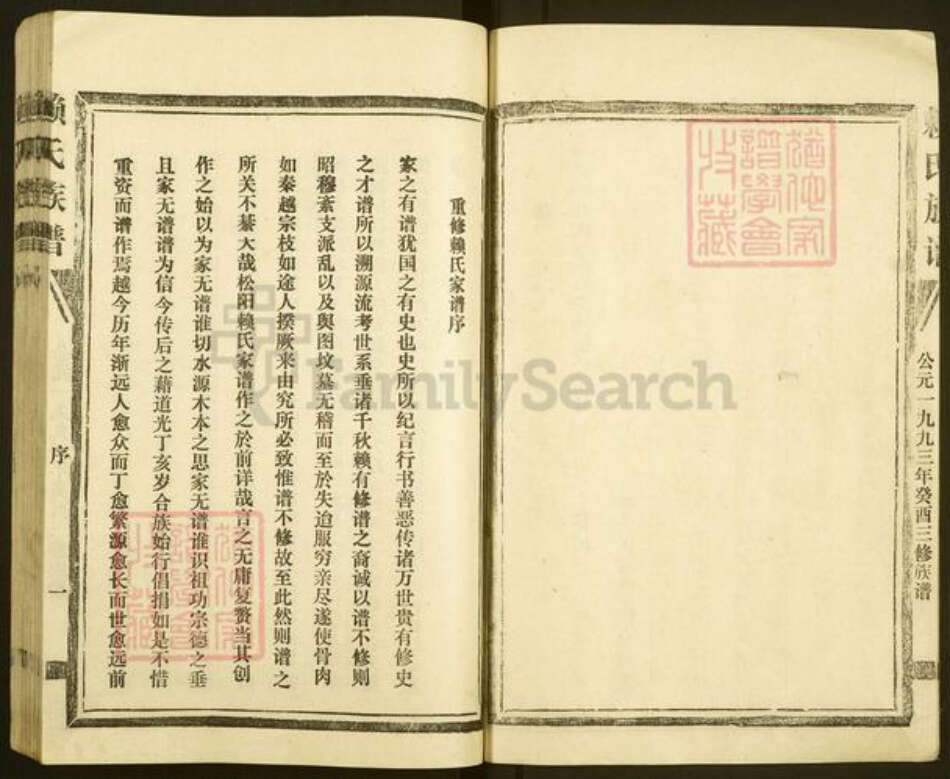 公元一九九三年癸酉三修族谱
重修赖氏家谱序
家之有谱犹国之有史也史所以纪言行书善恶传诸万世贵有修史
之才谱所以溯源流考世系垂诸千秋赖有修谱之裔诚以谱不修则
昭穆紊支派乱以及舆图坟墓无稽而至於失迨服穷亲尽遂使骨肉
如秦越宗枝如途人揆厥来由究所必致惟谱不修故至此然则谱之
所关不綦大哉松阳赖氏家谱作之於前详哉言之无庸复赘当其创
作之始以为家无谱谁切水源木本之思家无谱谁识祖功宗德之垂
且家无谱谱为信今传后之藉道光丁亥岁合族始行倡捐如是不惜
重资而谱作焉越今历年渐远人愈众而丁愈繁源愈长而世愈远前
赖氏族谱
序
一
FamilySearch